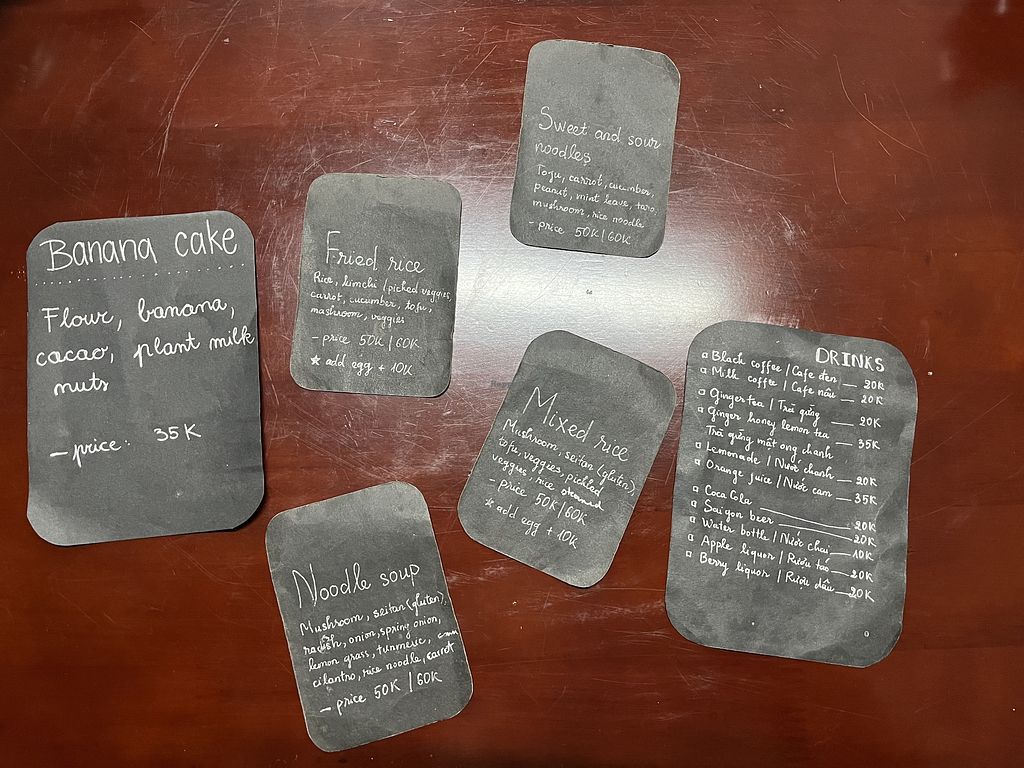 Banana cake
Flour, banana,
cacao, plant milk
nuts
- price: 35K
Fried rice
Rice, kimchi (picked veggies,
carrot, cucumber, tofu,
mashroom, veggies
- price 50K | 60K
★ add egg + 10K
Sweet and sour
noodles
Tofu, carrot, cucumber,
peanut, mint leave, taro,
mushroom, rice noodle
- price 50K | 60K
Noodle soup
Mushroom, seitan (gluten),
radish, onion, spring onion,
lemon grass, turmeric,
cilantro, rice noodle, carrot
- price 50K | 60K
Mixed rice
Mushroom, seitan (gluten),
tofu, veggies, pickled
veggies, rice steamed
- price 50K | 60K
★ add egg + 10K
DRINKS
Black coffee | Cafe đen — 20K
Milk coffee | Cafe nâu — 20K
Ginger tea | Trà gừng — 20K
Ginger honey lemon tea — 35K
Trà gừng mật ong chanh
Lemonade | Nước chanh — 20K
Orange juice | Nước cam — 35K
Coca Cola — 20K
Saigon beer — 20K
Water bottle | Nước chai — 10K
Apple liquor | Rượu táo — 20K
Berry liquor | Rượu dâu — 20K